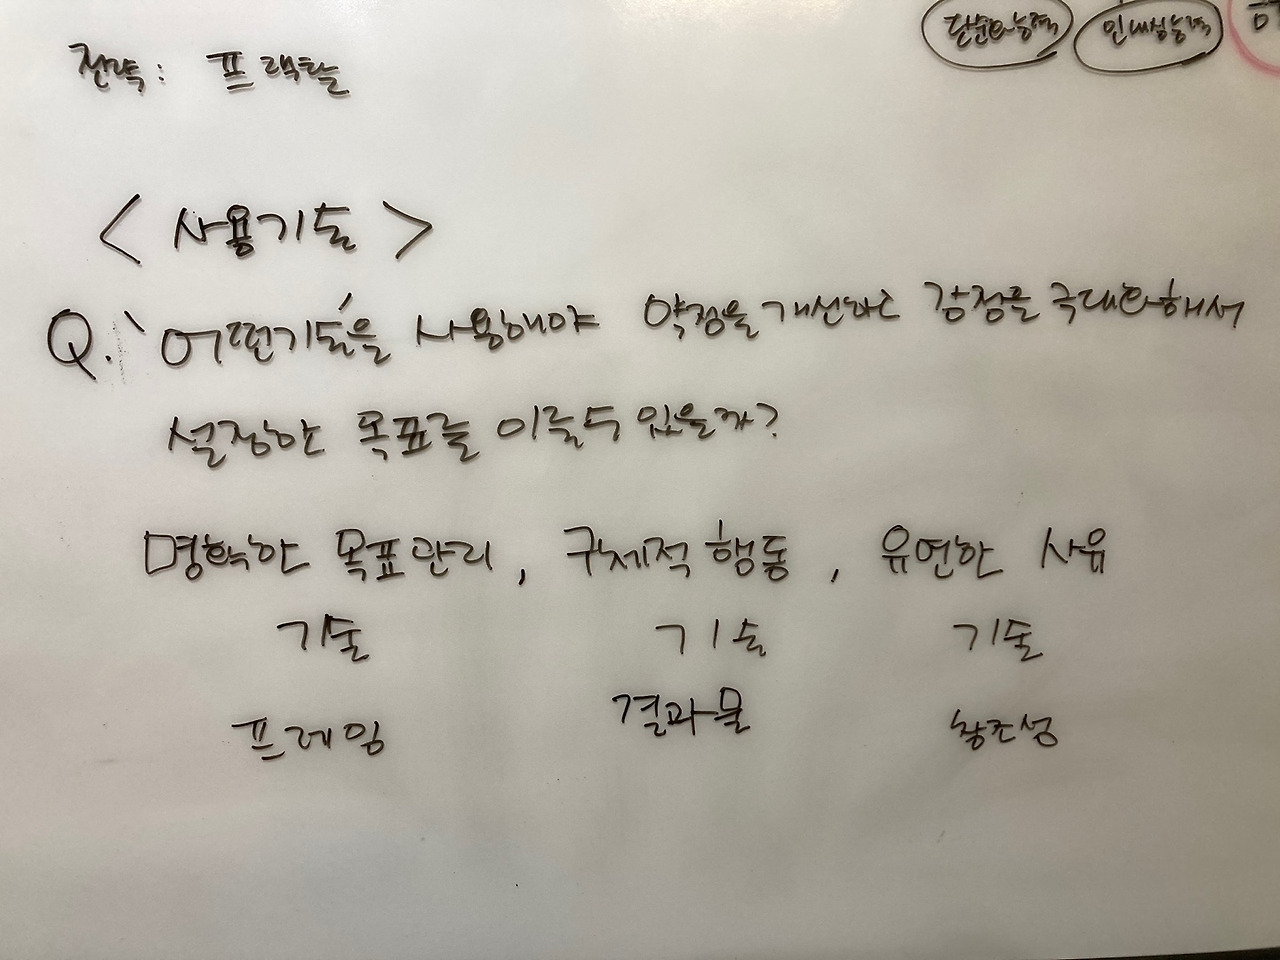 단순화능력 인내심능력
전략: 프랙탈
< 사용기술 >
Q. '어떤기술'을 사용해야 약점을 개선하고 강점을 극대화해서
설정한 목표를 이룰수 있을까?
명확한 목표관리, 구체적 행동, 유연한 사유
기술 기술 기술
프레임 결과물 창조성